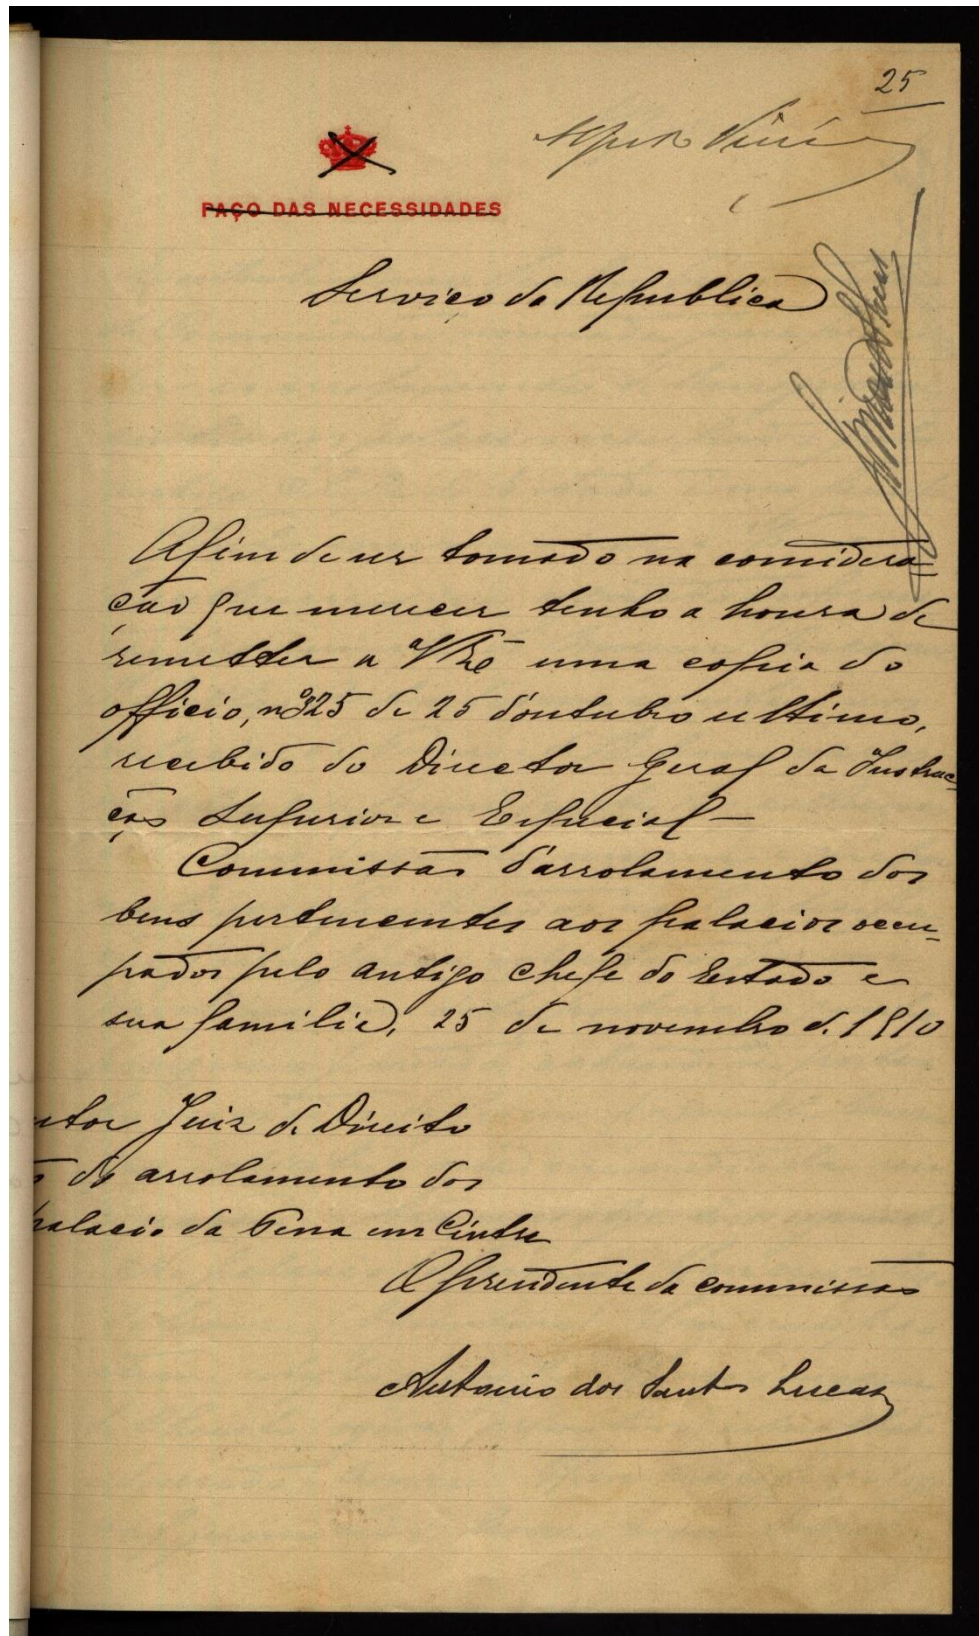 25
PAÇO DAS NECESSIDADES
Serviço da Republica
Afim de ser tomado na considera-
ção que merecer tenho a honra de
remetter a V. Exª uma copia do
officio, nº 325 de 25 d'outubro ultimo,
recebido do Director Geral da Instruc-
ção Superior e Especial —
Commissão d'arrolamento dos
bens pertencentes aos palacios occu-
pados pelo antigo chefe do Estado e
sua familia, 25 de novembro de 1910
Juiz de Direito
do arrolamento dos
palacio da Pena em Cintra
O presidente da commissão
Antonio dos Santos Lucas